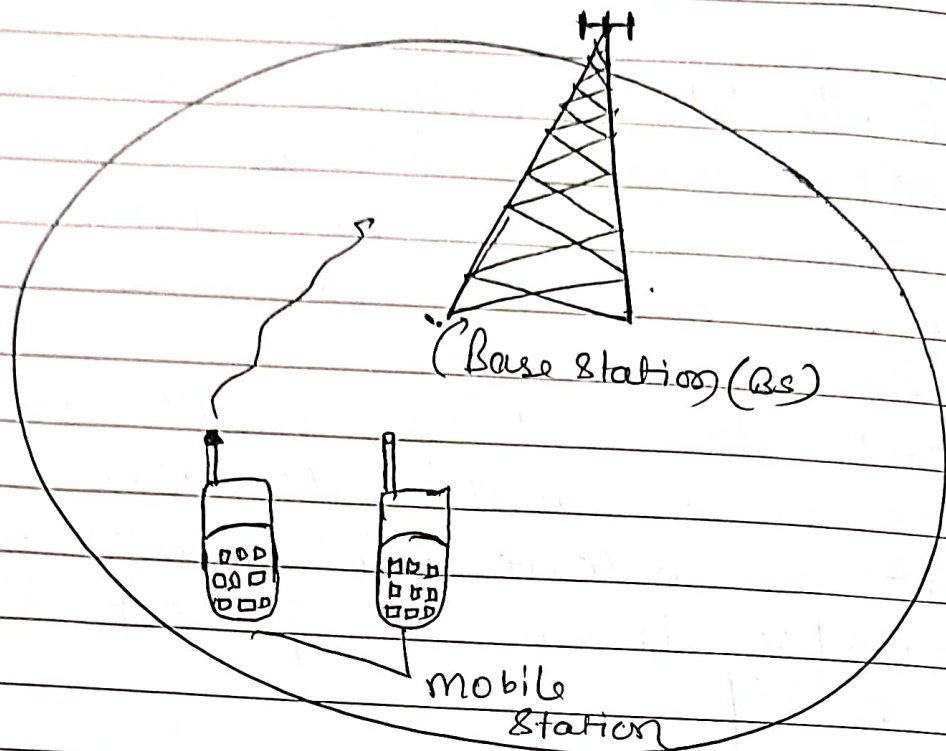 Base Station (BS)
mobile
Station